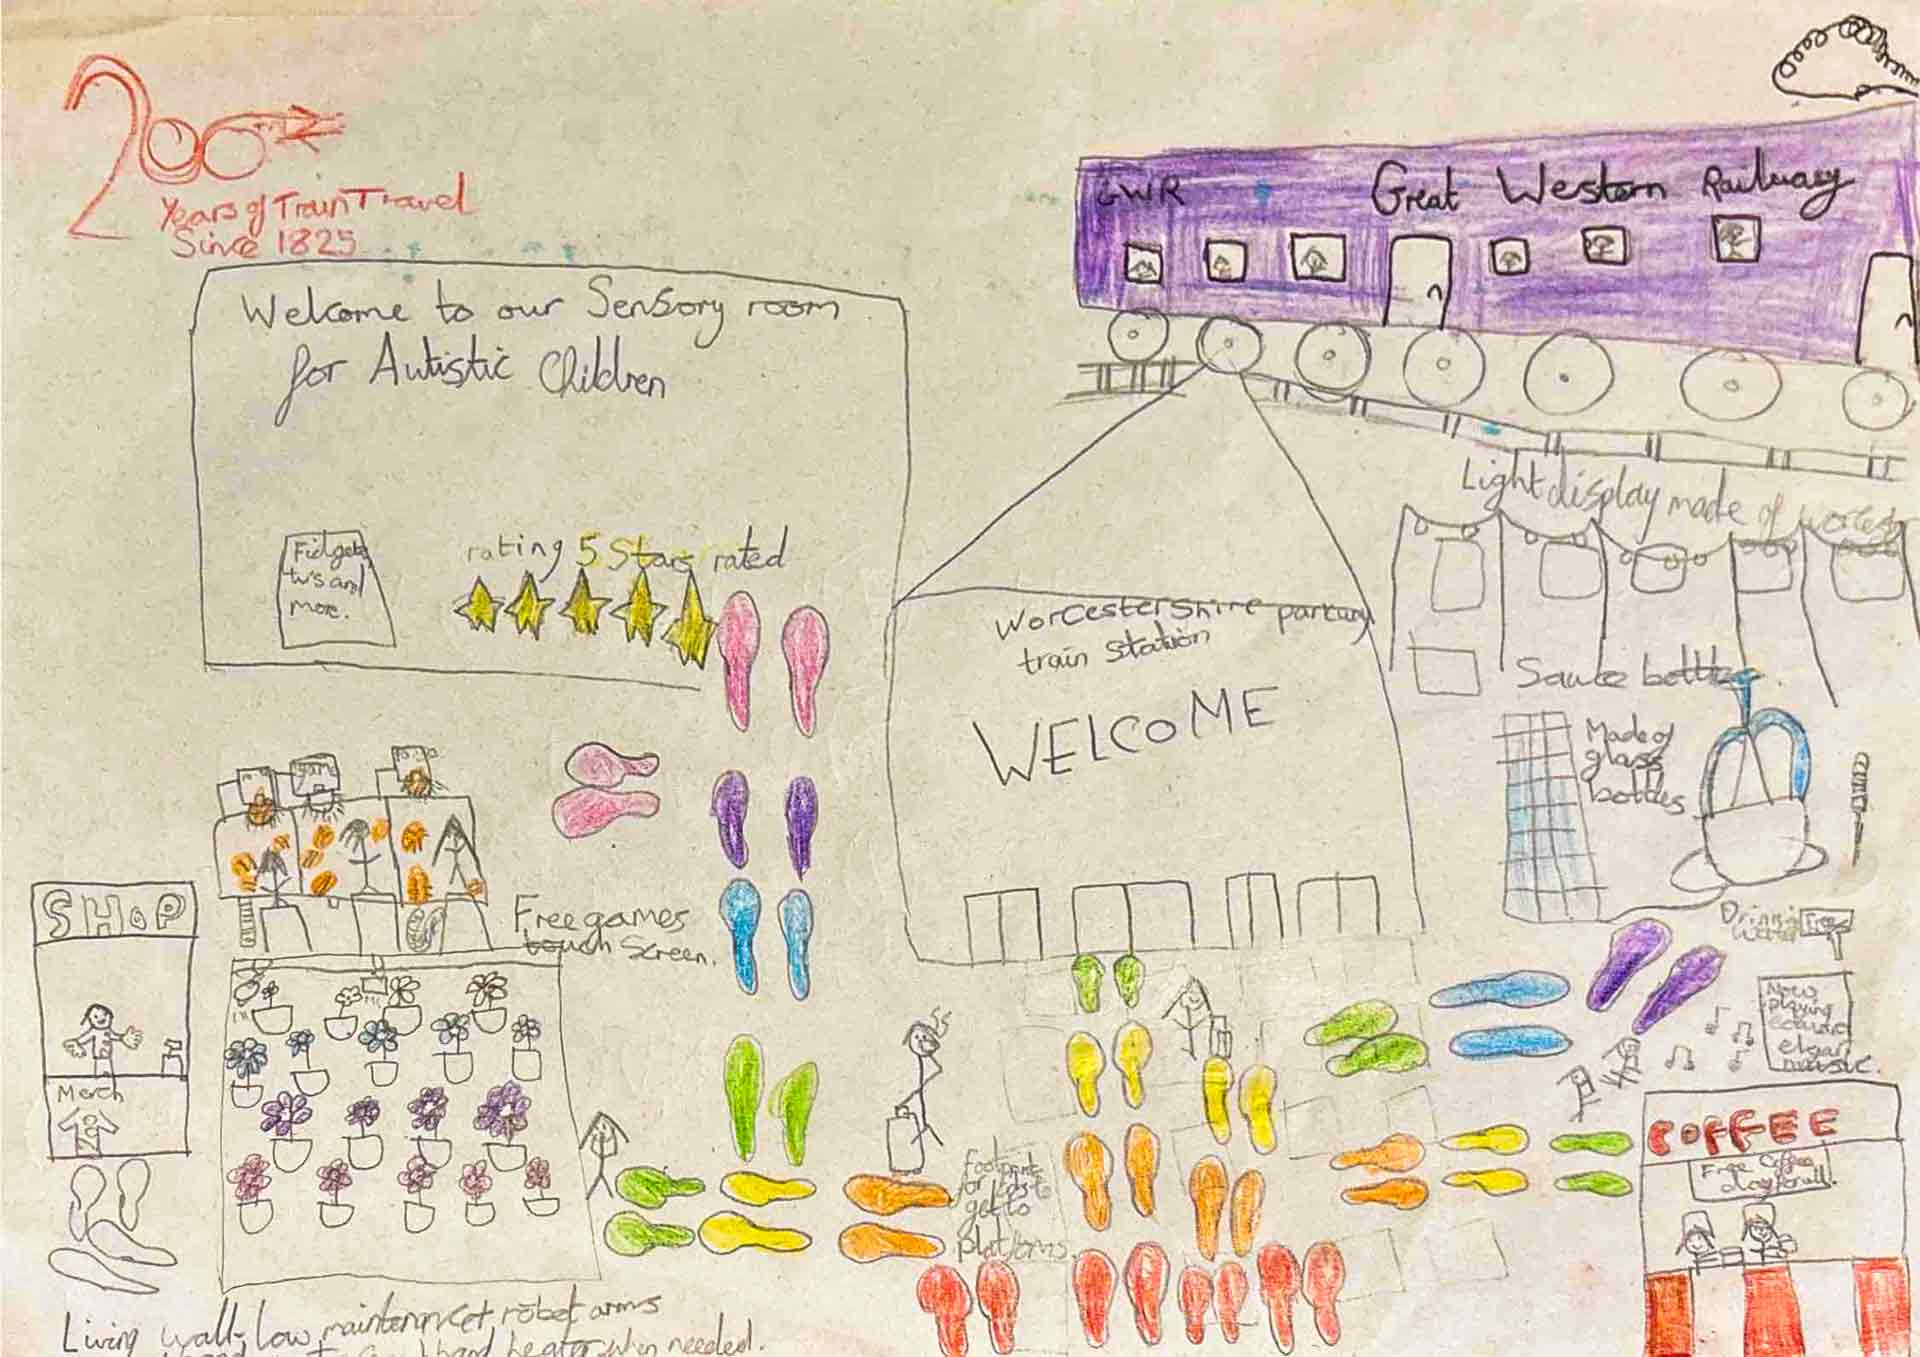 200
Years of Train Travel
Since 1825
Welcome to our Sensory room
for Autistic Children
Fidgets
tv's and
more.
rating 5 Stars rated
GWR
Great Western Railway
Light display made of
Sauce bottle
Worcestershire parkway
train station
WELCOME
Made of
glass
bottles
Drinking
Water
Free
Now
playing
edward
elgar
music.
COFFEE
Free Coffee
day for all.
Free games
touch screen.
game
SHOP
Merch
footprints
for
get to
platforms.
Living wall - low maintenance robot arms
heater when needed.